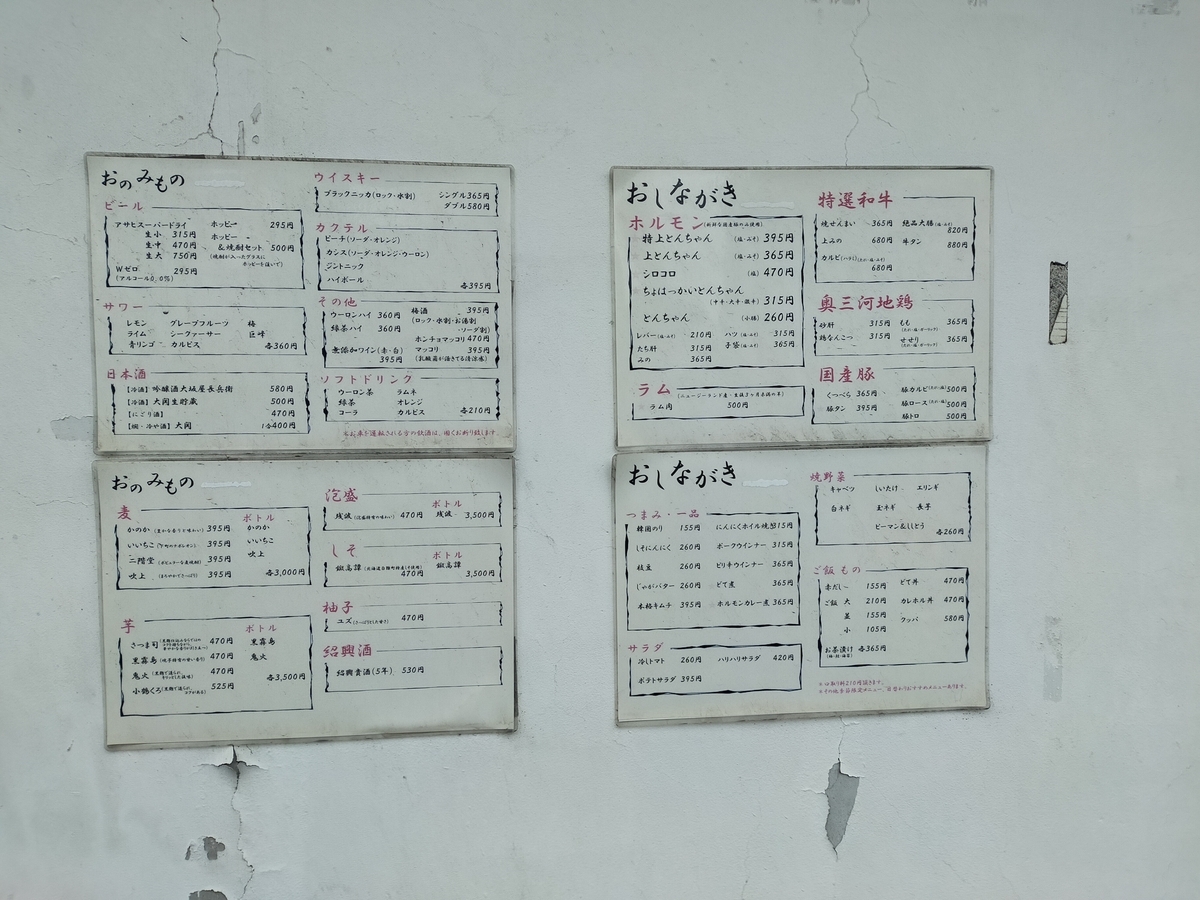 おのみもの
ビール
アサヒスーパードライ
生小 315円
生中 470円
生大 750円
Wゼロ 295円
(アルコール0.0%)
ホッピー 295円
ホッピー
&焼酎セット 500円
(焼酎が入ったグラスに
ホッピーを注いで)
サワー
レモン グレープフルーツ 梅
ライム シークァーサー 巨峰
青リンゴ カルピス 各360円
日本酒
【冷酒】吟醸酒大坂屋長兵衛 580円
【冷酒】大関生貯蔵 500円
【にごり酒】 470円
【燗・冷や酒】大関 1合400円
ウイスキー
ブラックニッカ(ロック・水割) シングル365円
ダブル580円
カクテル
ピーチ(ソーダ・オレンジ)
カシス(ソーダ・オレンジ・ウーロン)
ジントニック
ハイボール 各395円
その他
ウーロンハイ 360円
緑茶ハイ 360円
無添加ワイン(赤・白)
395円
梅酒 395円
(ロック・水割・お湯割
・ソーダ割)
ホンチョマッコリ 470円
マッコリ 395円
(乳酸菌が活きてる清涼感)
ソフトドリンク
ウーロン茶 ラムネ
緑茶 オレンジ
コーラ カルピス 各210円
※お車を運転される方の飲酒は、固くお断り致します。
おのみもの
麦 ボトル
かのか 395円 かのか
いいちこ 395円 いいちこ
二階堂 395円 吹上
吹上 (まろやかでさっぱり) 395円 各3,000円
芋 ボトル
さつま司 470円 黒霧島
黒霧島 470円 鬼火
鬼火 470円 各3,500円
小鶴くろ 525円
泡盛 ボトル
残波 470円 残波 3,500円
しそ ボトル
鍛高譚 鍛高譚
470円 3,500円
柚子
ユズ (さっぱりした甘さ) 470円
紹興酒
紹興貴酒(5年) 530円
おしながき
ホルモン (新鮮な国産物のみ使用)
特上とんちゃん (塩・みそ) 395円
上とんちゃん (塩・みそ) 365円
シロコロ (塩) 470円
ちょはっかいとんちゃん
315円
とんちゃん (小腸) 260円
レバー (塩・みそ) 210円 ハツ (塩・みそ) 315円
たち肝 315円 子袋 (塩・みそ) 365円
みの 365円
ラム
ラム肉 500円
特選和牛
焼せんまい 365円 絶品大腸 (塩・みそ)
820円
上みの 680円 牛タン 880円
カルビ
680円
奥三河地鶏
砂肝 315円 もも 365円
鶏なんこつ 315円 せせり 365円
国産豚
くつべら 365円 豚カルビ 500円
豚タン 395円 豚ロース 500円
豚トロ 500円
おしながき
つまみ・一品
韓国のり 155円 にんにくホイル焼き 315円
しそにんにく 260円 ポークウインナー 315円
枝豆 260円 ピリ辛ウインナー 365円
じゃがバター 260円 どて煮 365円
本格キムチ 395円 ホルモンカレー煮 365円
サラダ
冷しトマト 260円 ハリハリサラダ 420円
ポテトサラダ 395円
焼野菜
キャベツ しいたけ エリンギ
白ネギ 玉ネギ 長芋
ピーマン&ししとう
各260円
ご飯もの
赤だし 155円 どて丼 470円
ご飯 大 210円 カレホル丼 470円
並 155円 クッパ 580円
小 105円
お茶漬け 各365円